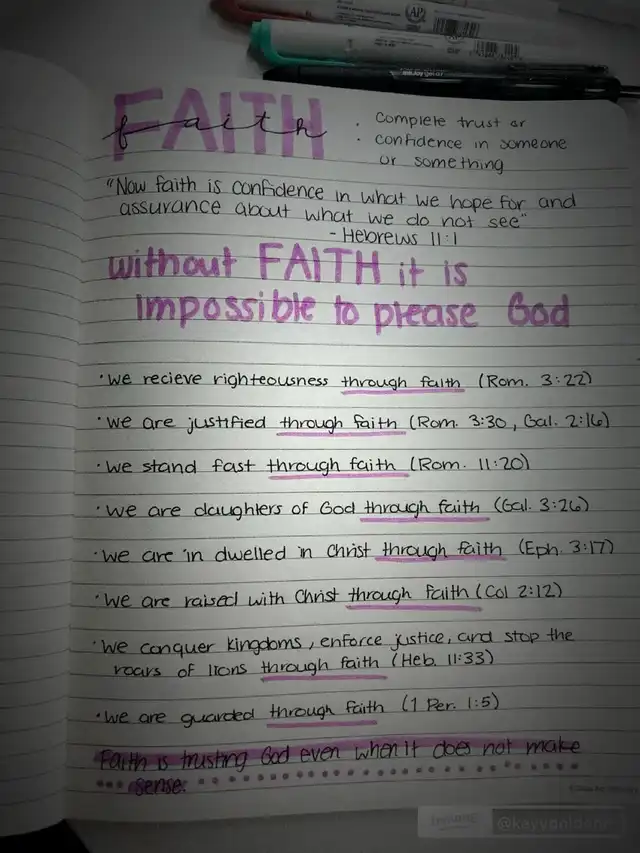 AP
FAITH
faith
· Complete trust or
· confidence in someone
or something
"Now faith is confidence in what we hope for and
assurance about what we do not see"
- Hebrews 11:1
without FAITH it is
impossible to please God
· we recieve righteousness through faith (Rom. 3:22)
· we are justified through faith (Rom. 3:30, Gal. 2:16)
· we stand fast through faith (Rom. 11:20)
· we are daughters of God through faith (Gal. 3:26)
· we are in dwelled in Christ through faith (Eph. 3:17)
· we are raised with Christ through faith (Col 2:12)
· we conquer kingdoms, enforce justice, and stop the
roars of lions through faith (Heb. 11:33)
· we are guarded through faith (1 Per. 1:5)
Faith is trusting God even when it does not make
sense.